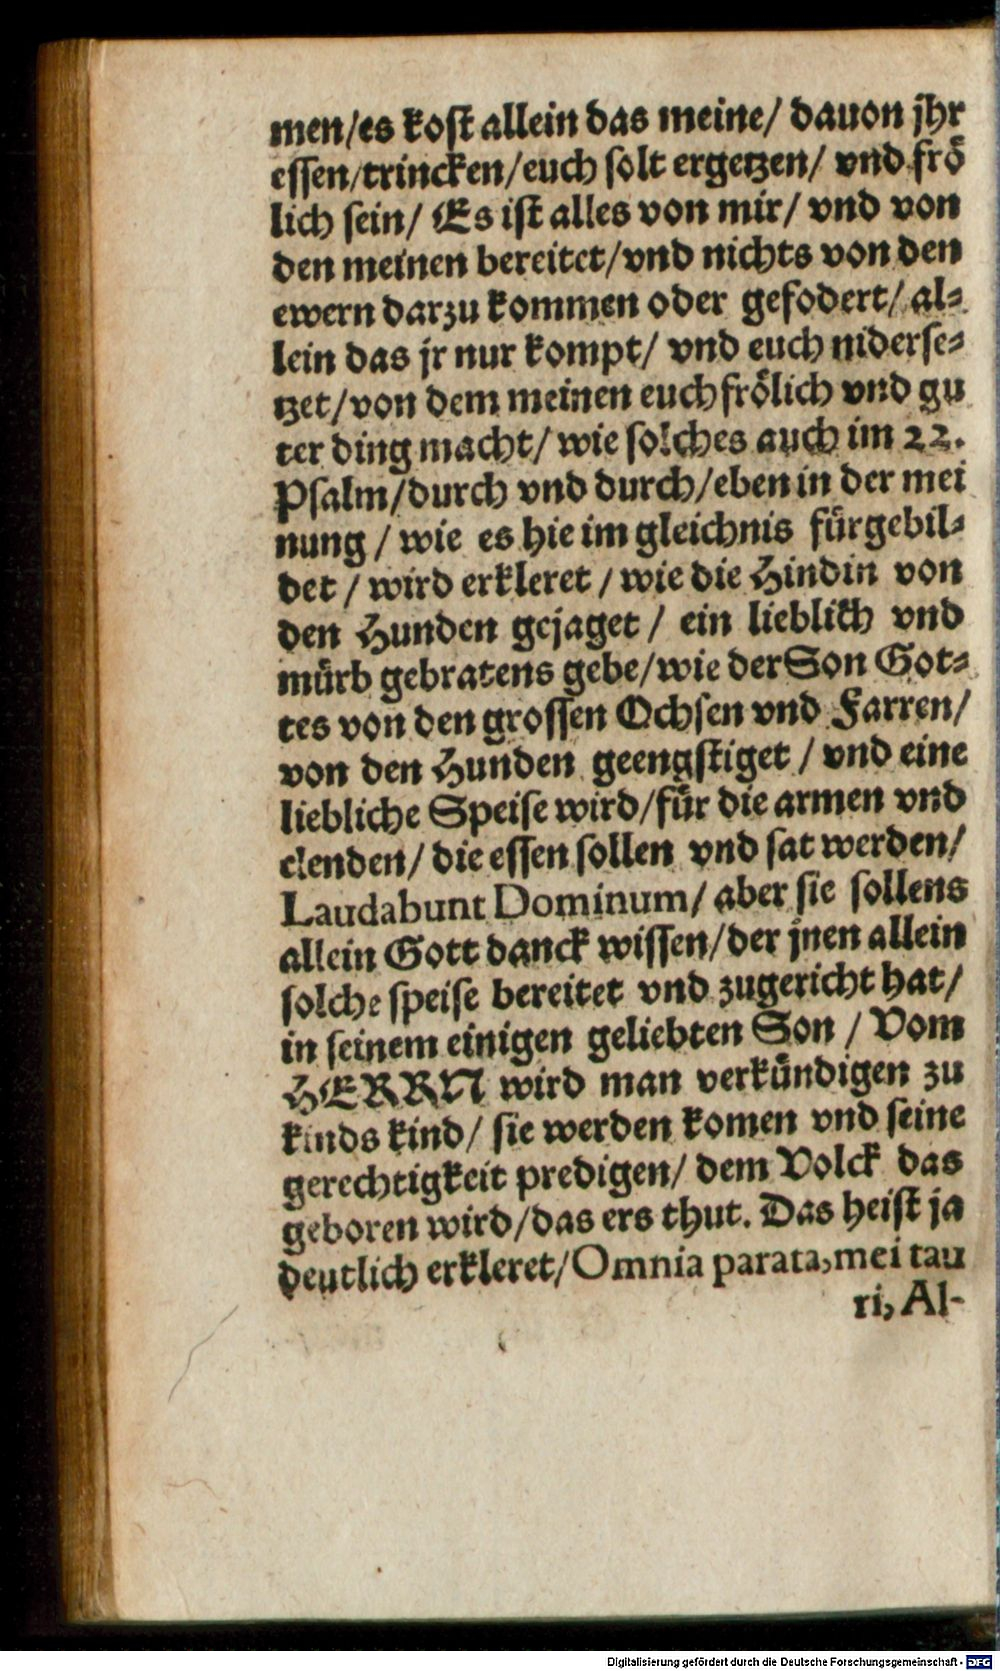 men/es kost allein das meine/ dauon jhr
essen/trincken/euch solt ergetzen/ vnd frö
lich sein/ Es ist alles von mir/ vnd von
den meinen bereitet/vnd nichts von den
ewern darzu kommen oder gefodert/ al-
lein das jr nur kompt/ vnd euch niderse-
tzet/von dem meinen euch frölich vnd gu
ter ding macht/ wie solches auch im 22.
Psalm/durch vnd durch/eben in der mei
nung / wie es hie im gleichnis fürgebil-
det / wird erkleret / wie die Hindin von
den Hunden gejaget / ein lieblich vnd
mürb gebratens gebe/wie der Son Got-
tes von den grossen Ochsen vnd Farren/
von den Hunden geengstiget / vnd eine
liebliche Speise wird/für die armen vnd
elenden/ die essen sollen vnd sat werden/
Laudabunt Dominum/ aber sie sollens
allein Gott danck wissen/der jnen allein
solche speise bereitet vnd zugericht hat/
in seinem einigen geliebten Son / Vom
HERRN wird man verkündigen zu
kinds kind/ sie werden komen vnd seine
gerechtigkeit predigen/ dem Volck das
geboren wird/das ers thut. Das heist ja
deutlich erkleret/Omnia parata, mei tau
ri, Al-
Digitalisierung gefördert durch die Deutsche Forschungsgemeinschaft - DFG